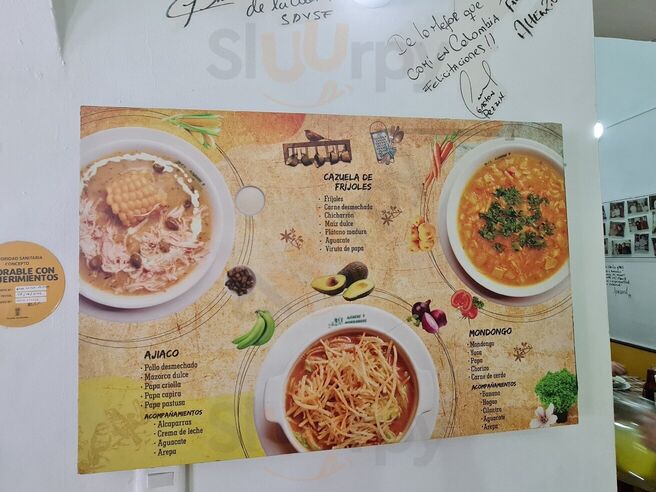 de la
SDYSF
De lo mejor que
comi en Colombia
Felicitaciones!!
Slurpy
CAZUELA DE
FRIJOLES
· Frijoles
· Carne desmechada
· Chicharrón
· Maíz dulce
· Plátano maduro
· Aguacate
· Viruta de papa
CONCEPTO
AJIACO
· Pollo desmechado
· Mazorca dulce
· Papa criolla
· Papa capira
· Papa pastusa
ACOMPAÑAMIENTOS
· Alcaparras
· Crema de leche
· Aguacate
· Arepa
MONDONGO
· Mondongo
· Yuca
· Papa
· Chorizo
· Carne de cerdo
ACOMPAÑAMIENTOS
· Banano
· Hogao
· Cilantro
· Aguacate
· Arepa